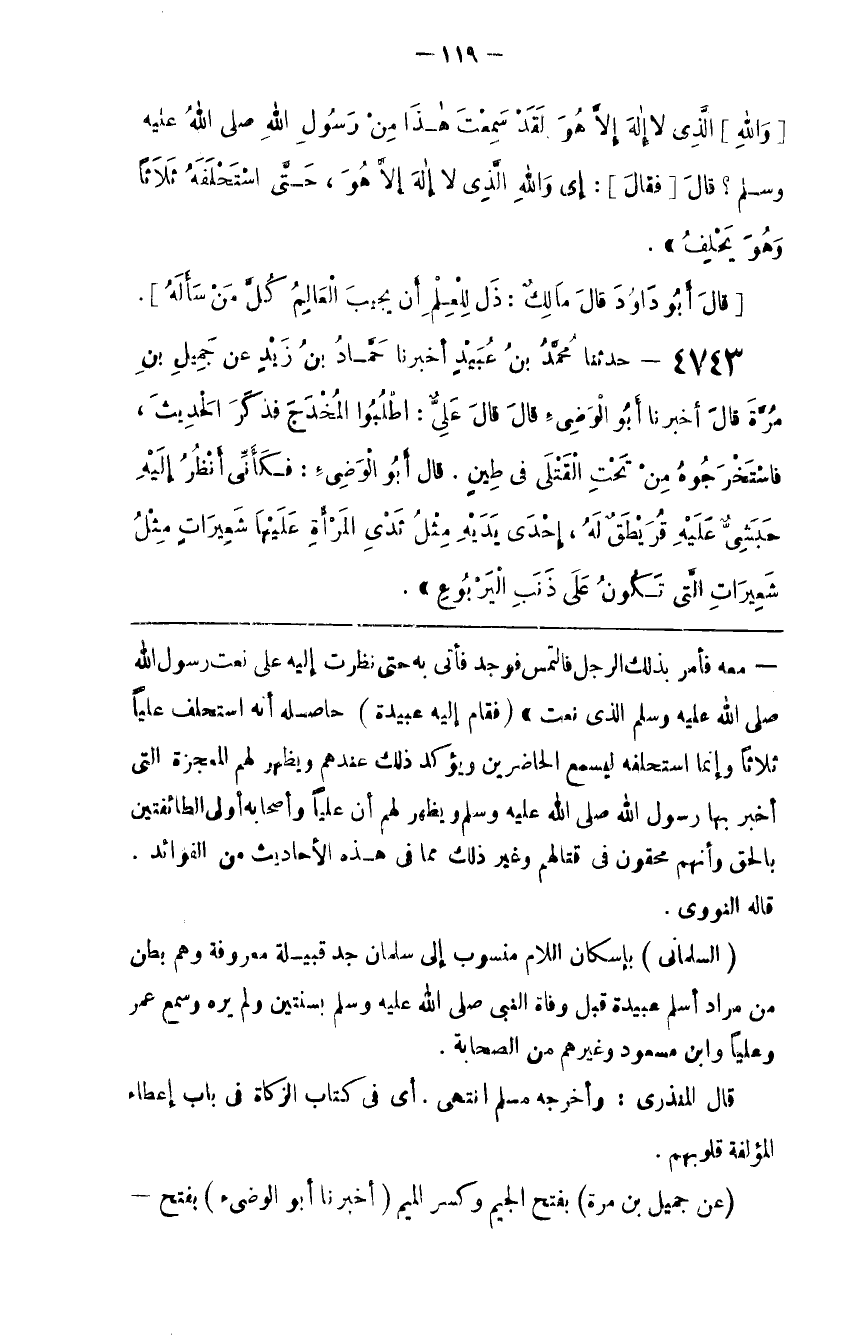 — ١١٩ —
[ وَاللهِ ] الَّذِى لا إِلٰهَ إِلاَّ هُوَ لَقَدْ سَمِعْتَ هٰـذَا مِنْ رَسُولِ اللهِ صلى اللهُ عليه
وسـلم ؟ قالَ [ فقالَ ] : إى وَاللهِ الَّذِى لا إِلٰهَ إِلاَّ هُوَ ، حَـتَّى اسْتَحْلَفَهُ ثَلَاثَاً
وَهُوَ يَحْلِفُ » .
[ قالَ أَبُو دَاوُدَ قالَ مَالِكٌ : ذَل لِلْعِلْمِ أن يجيبَ الْعَالِمُ كُلَّ مَنْ سَأَلَهُ ] .
٤٧٤٣ — حدثنا مُحمَّدُ بنُ عُبَيْدٍ أخبرنا حَمَّـادُ بنُ زَيْدٍ عن جَمِيلِ بنِ
مُرَّةَ قالَ أخبرنا أَبُو الْوَضِىءِ قالَ قالَ عَلِىٌّ : اطْلُبُوا المُخْدَجَ فذكَرَ الحَدِيثَ ،
فاسْتَخْرَجُوهُ مِنْ تَحْتِ الْقَتْلَى فى طِينٍ . قال أَبُو الْوَضِىءِ : فَـكَأَنِّى أَنْظُرُ إِلَيْهِ
حَبَشِىٌّ عَلَيْهِ قُرَيْطَقٌ لَهُ ، إِحْدَى يَدَيْهِ مِثْلُ ثَدْىِ المَرْأَةِ عَلَيْهَا شَعِيرَاتٍ مِثْلُ
شَعِيرَاتِ الَّتِى تَـكُونُ عَلَى ذَنَبِ الْيَرْبُوعِ » .
— معه فأمر بذلك الرجل فالتمس فوجد فأتى به حتى نظرت إليه على نعت رسول الله
صلى الله عليه وسلم الذى نعت » ( فقام إليه عبيدة ) حاصـله أنه استحلف علياً
ثلاثاً وإنما استحلفه ليسمع الحاضرين ويؤكد ذلك عندهم ويظهر لهم المعجزة التى
أخبر بها رسول الله صلى الله عليه وسلم ويظهر لهم أن علياً وأصحابه أولى الطائفتين
بالحق وأنهم محقون فى قتالهم وغير ذلك مما فى هـذه الأحاديث من الفوائد .
قاله النووى .
( السلمانى ) بإسكان اللام منسوب إلى سلمان جد قبيـلة معروفة وهم بطن
من مراد أسلم عبيدة قبل وفاة النبى صلى الله عليه وسلم بسنتين ولم يره وسمع عمر
وعلياً وابن مسعود وغيرهم من الصحابة .
قال المنذرى : وأخرجه مسلم انتهى . أى فى كتاب الزكاة فى باب إعطاء
المؤلفة قلوبهم .
(عن جميل بن مرة) بفتح الجيم وكسر الميم ( أخبرنا أبو الوضىء ) بفتح —